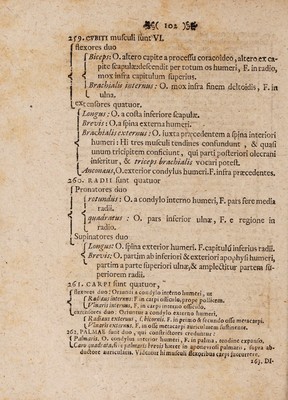 ( 102 )
259. CVBITI musculi sunt VI.
flexores duo
Biceps: O. altero capite a processu coracoideo, altero ex ca-
pite scapulæ descendit per totum os humeri, F. in radio,
mox infra capitulum superius.
Brachialis internus: O. mox infra finem deltoidis, F. in
ulna.
extensores quatuor.
Longus: O. a costa inferiore scapulæ.
Brevis: O. a spina externa humeri.
Brachialis externus: O. iuxta præcedentem a spina interiori
humeri: Hi tres musculi tendines confundunt, & quasi
unum tricipitem conficiunt, qui parti posteriori olecrani
inseritur, & triceps brachialis vocari potest.
Anconæus, O. exterior condylus humeri. F. infra præcedentes.
260. RADII sunt quatuor
Pronatores duo
rotundus: O. a condylo interno humeri, F. pars fere media
radii.
quadratus: O. pars inferior ulnæ, F. e regione in
radio.
Supinatores duo
Longus: O. spina exterior humeri. F. capitulū inferius radii.
Brevis: O. partim ab inferiori & exteriori apophysi humeri,
partim a parte superiori ulnæ, & amplectitur partem su-
periorem radii.
261. CARPI sunt quatuor,
flexores duo: Oriuntur a condylo interno humeri, ut
Radiæus internus: F. in carpi officulo, prope pollicem.
Vlnaris internus: F. in carpi officulo
extensores duo: Oriuntur a condylo exteriori humeri
Radiæus externus, s. bicornis. F. in primo & secundo osse metacarpi.
Vlnaris externus: F. in osse metacarpi auricularem sustinente.
262. PALMAE sunt duo, qui constrictores creduntur:
Palmaris. O. condylus interior humeri, F. in palma, tendine expanso.
Caro quadrata, oritur in aponevrosi palmari, supra ab-
ductore auricularis. Videntur hi musculi flexoribus carpi succurrere.
263. DI-